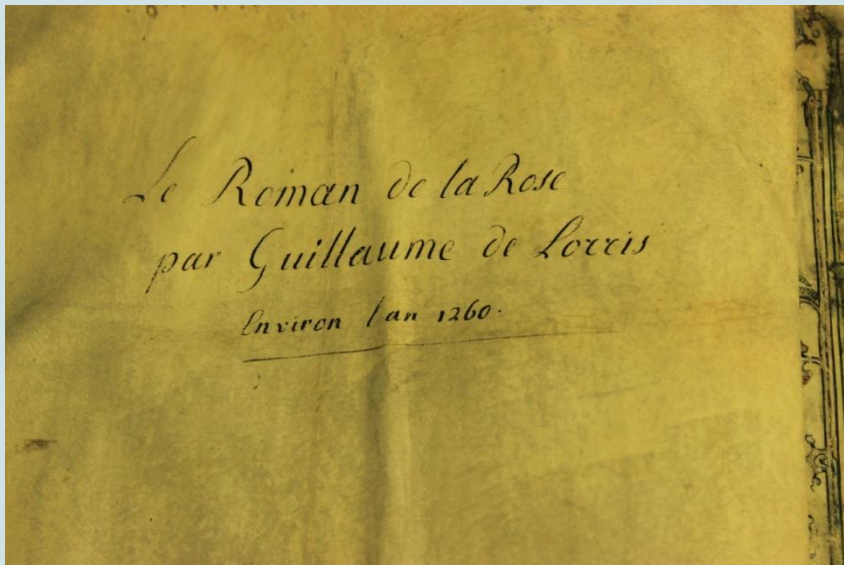 Le Roman de la Rose
par Guillaume de Lorris
Environ l'an 1260.